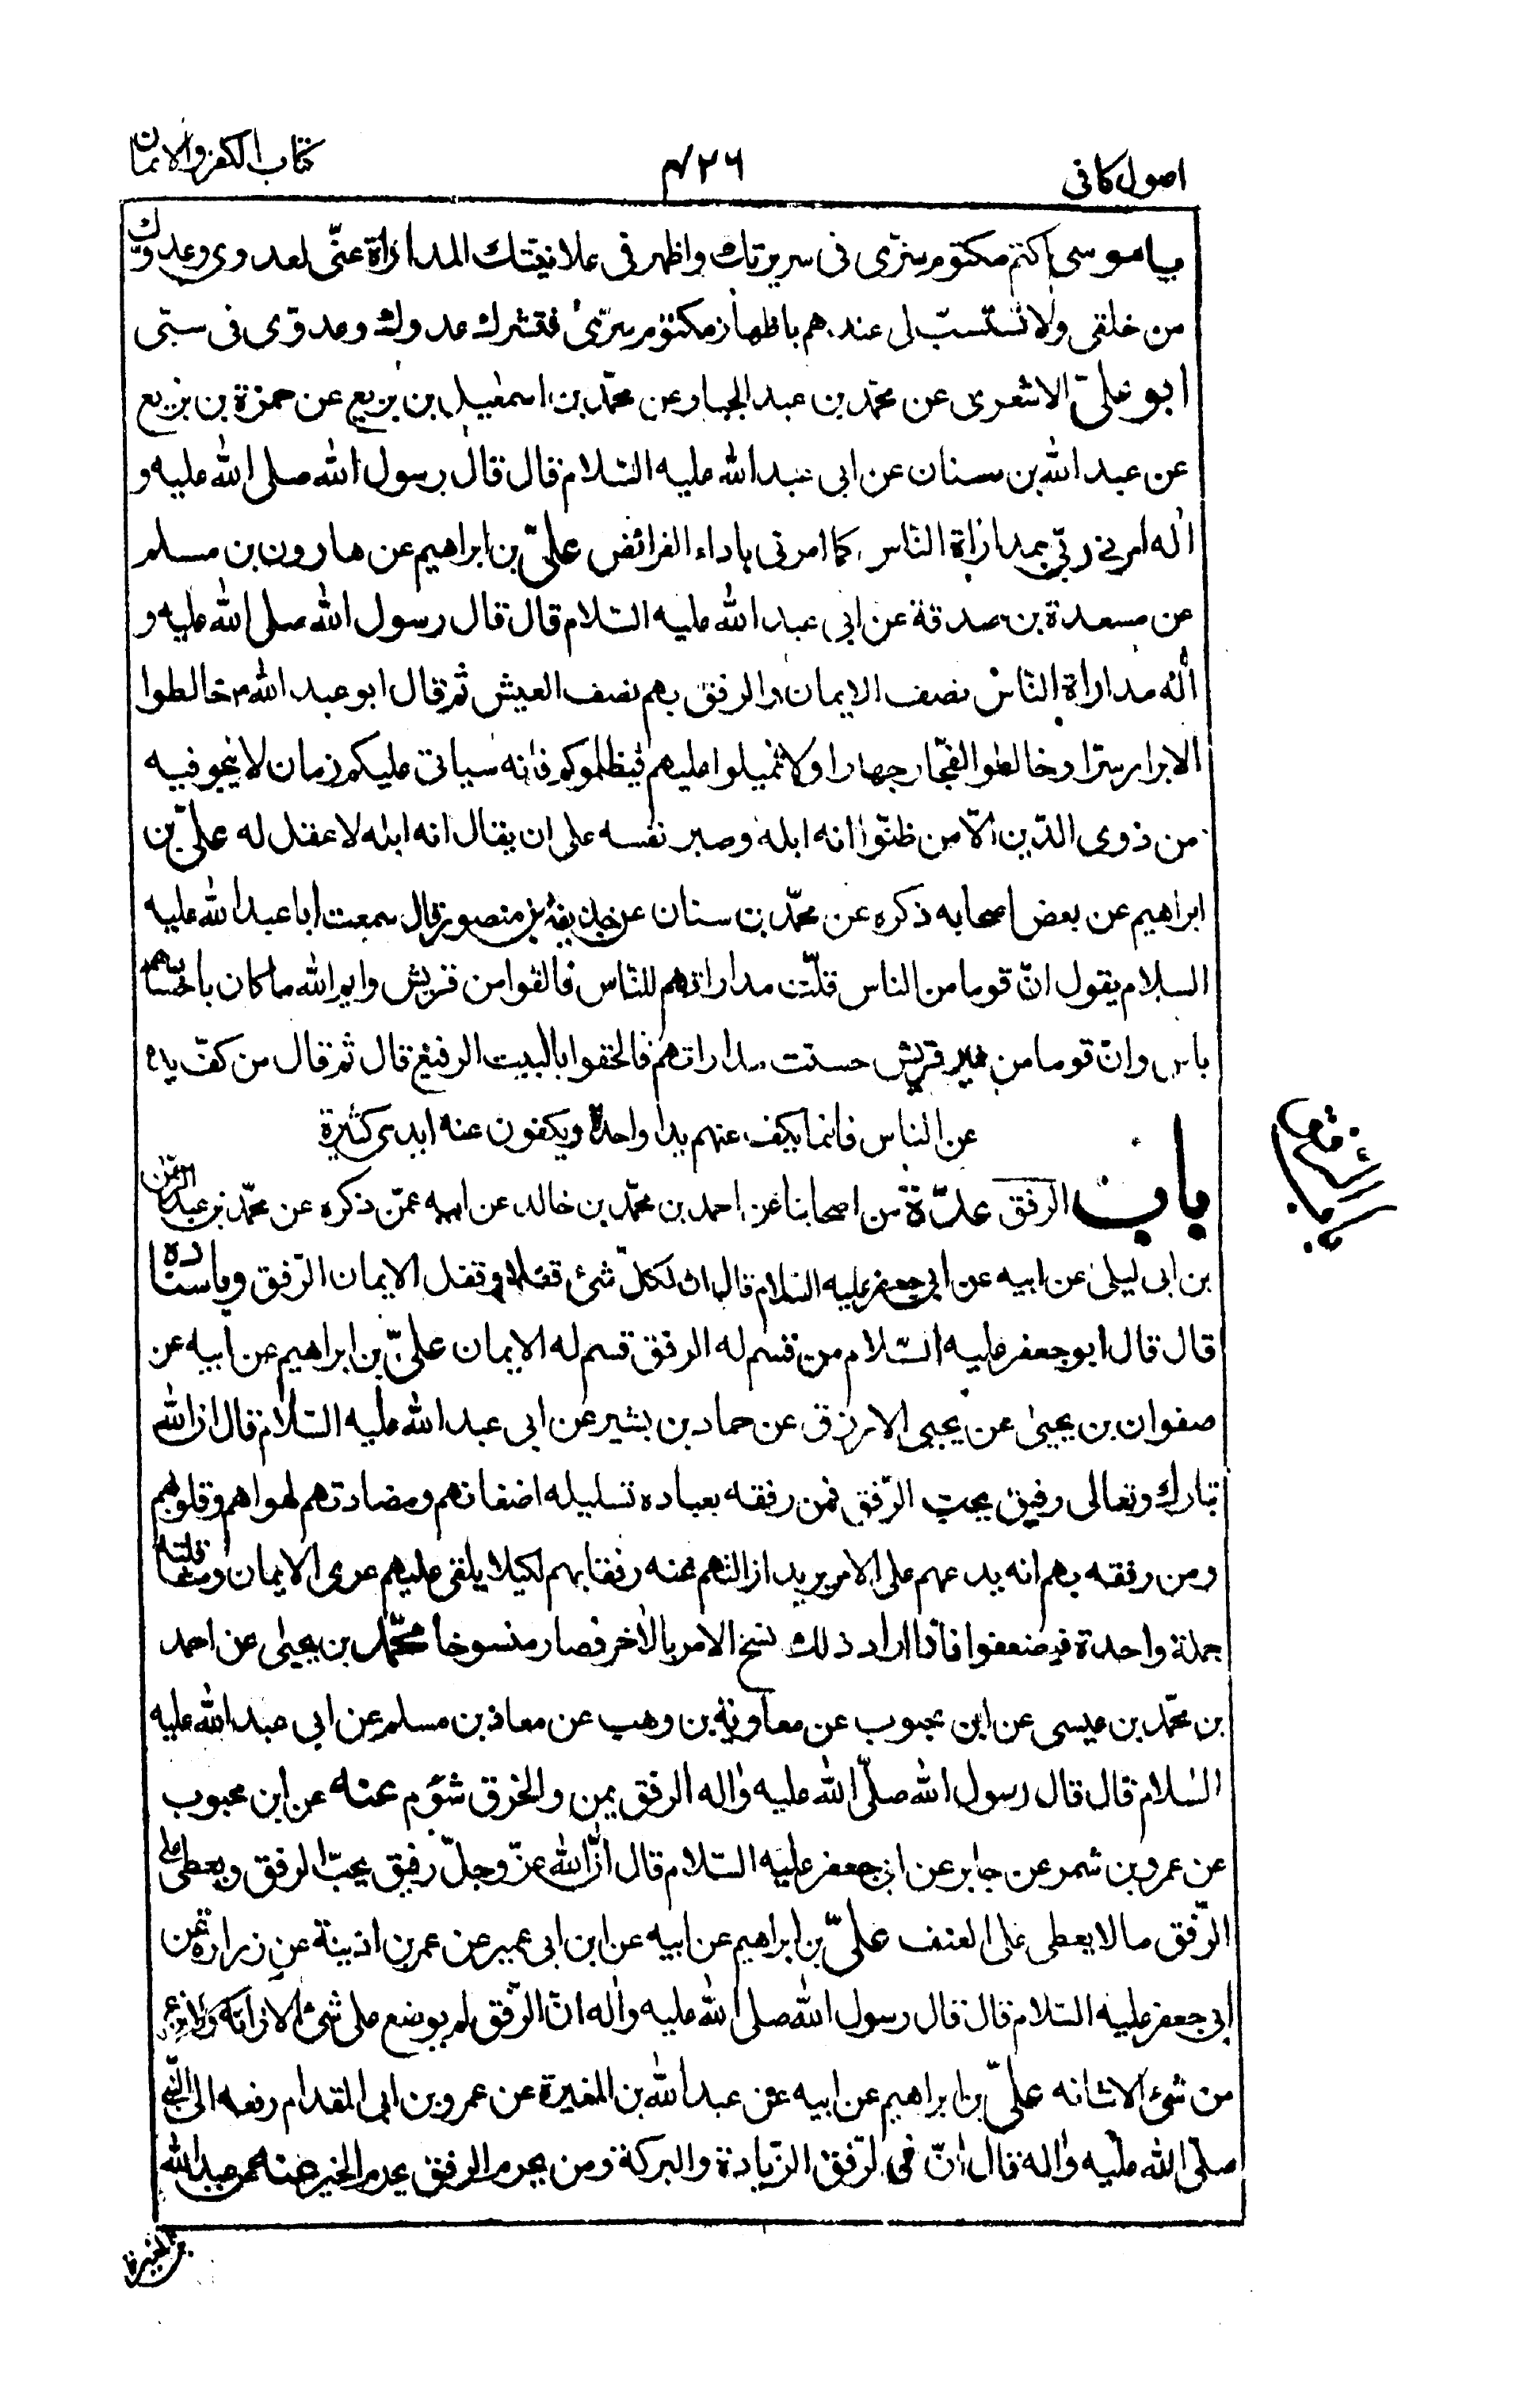 اصول كافى
۴۲۶
كتاب الكفر والايمان
ياموسى اكتم مكتوم سرّى فى سريرتك واظهر فى علانيتك المداراة عنّى لعدوى وعدوك
من خلقى ولا تستسبّ لى عندهم باظهار مكتوم سرّى فتشرك عدوك وعدوّى فى سبّى
ابو علىّ الاشعرى عن محمّد بن عبد الجبار عن محمّد بن اسمعيل بن بزيع عن حمزة بن بزيع
عن عبد الله بن سنان عن ابى عبد الله عليه السّلام قال قال رسول الله صلى الله عليه و
اله امرنى ربّى بمداراة النّاس كما امرنى باداء الفرائض علىّ بن ابراهيم عن هارون بن مسلم
عن مسعدة بن صدقة عن ابى عبد الله عليه السّلام قال قال رسول الله صلى الله عليه و
اله مداراة النّاس نصف الايمان والرفق بهم نصف العيش ثم قال ابو عبد الله م خالطوا
الابرار سرّا وخالطوا الفجّار جهارا ولا تميلوا عليهم فيظلموكم فانه سياتى عليكم زمان لا ينجو فيه
من ذوى الدّين الّا من ظنّوا انه ابله وصبر نفسه على ان يقال انه ابله لا عقل له علىّ بن
ابراهيم عن بعض اصحابه ذكره عن محمّد بن سنان عن حذيفة بن منصور قال سمعت ابا عبد الله عليه
السلام يقول انّ قوما من الناس قلّت مداراتهم للنّاس فالقوا من قريش وايم الله ما كان باحسابهم
باس وانّ قوما من غير قريش حسنت مداراتهم فالحقوا بالبيت الرفيع قال ثم قال من كفّ يده
عن الناس فانما يكف عنهم يدا واحدة ويكفون عنه ايدى كثيرة
باب الرفق عدّة من اصحابنا عن احمد بن محمّد بن خالد عن ابيه عمّن ذكره عن محمّد بن عبد الرحمن
بن ابى ليلى عن ابيه عن ابى جعفر عليه السّلام قال ان لكلّ شئ قفلا وقفل الايمان الرّفق وباسناده
قال قال ابو جعفر عليه السّلام من قسم له الرفق قسم له الايمان علىّ بن ابراهيم عن ابيه عن
صفوان بن يحيى عن يحيى الازرق عن حماد بن بشير عن ابى عبد الله عليه السّلام قال ان الله
تبارك وتعالى رفيق يحب الرّفق فمن رفقه بعباده تسليله اضغانهم ومضادتهم لهواهم وقلوبهم
ومن رفقه بهم انه يدعهم على الامر يريد ازالتهم عنه رفقا بهم لكيلا يلقى عليهم عرى الايمان ومثاقلته
جملة واحدة فيضعفوا فاذا اراد ذلك نسخ الامر بالاخر فصار منسوخا محمّد بن يحيى عن احمد
بن محمّد بن عيسى عن ابن محبوب عن معاوية بن وهب عن معاذ بن مسلم عن ابى عبد الله عليه
السّلام قال قال رسول الله صلّى الله عليه واله الرفق يمن والخرق شؤم عنه عن ابن محبوب
عن عمرو بن شمر عن جابر عن ابى جعفر عليه السّلام قال انّ الله عزّ وجلّ رفيق يحبّ الرفق ويعطى على
الرّفق ما لا يعطى على العنف علىّ بن ابراهيم عن ابيه عن ابن ابى عمير عن عمر بن اذينة عن زرارة عن
ابى جعفر عليه السّلام قال قال رسول الله صلى الله عليه واله انّ الرّفق لم يوضع على شئ الا زانه ولا نزع
من شئ الا شانه علىّ بن ابراهيم عن ابيه عن عبد الله بن المغيرة عن عمرو بن ابى المقدام رفعه الى النبى
صلّى الله عليه واله قال انّ فى الرّفق الزّيادة والبركة ومن يحرم الرفق يحرم الخير عنه عن عبد الله
بن المغيرة